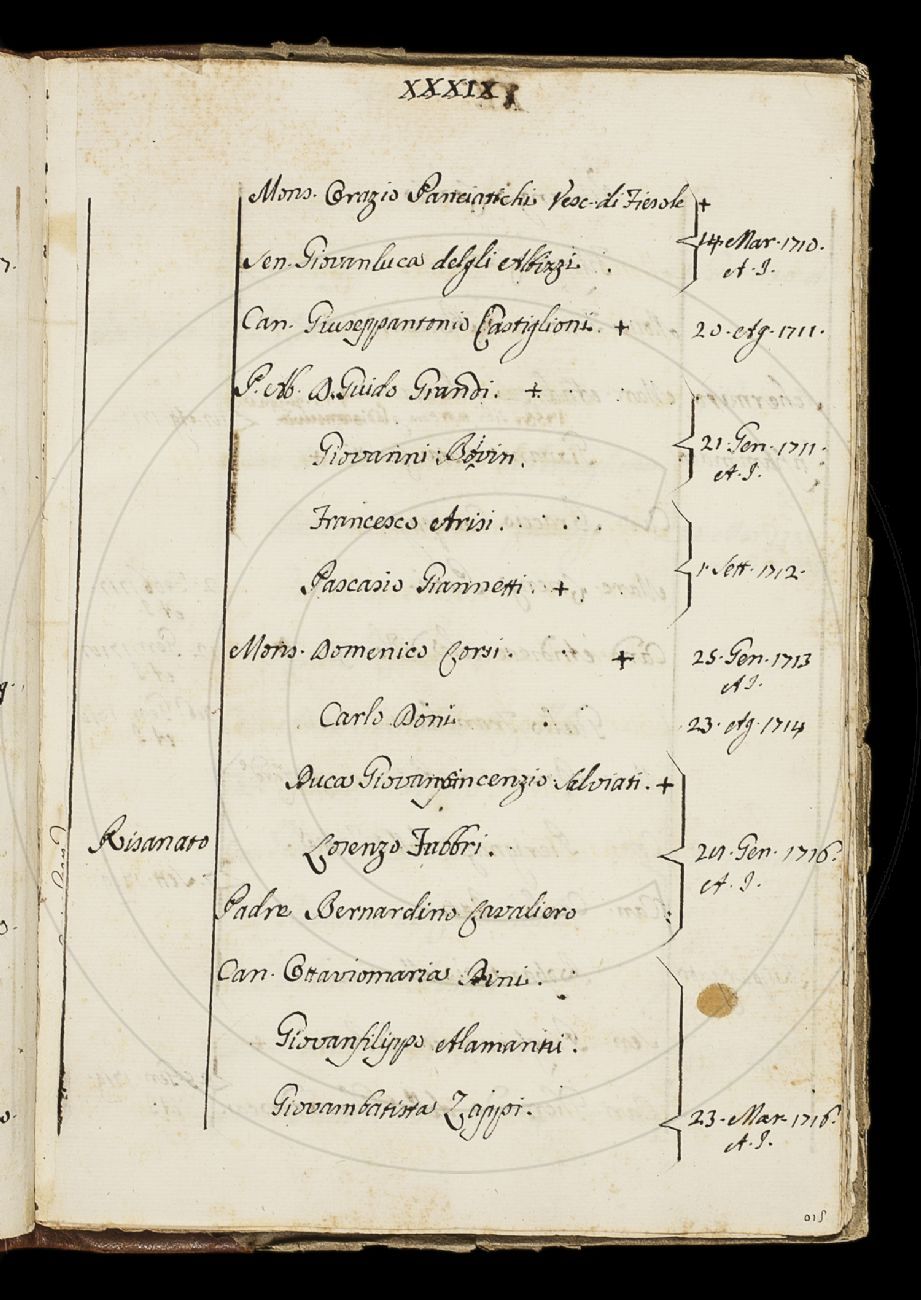 XXXIX
Mons. Orazio Panciatichi Vesc. di Fiesole +
14. Mar. 1710.
A. I.
Sen. Giovanluca degli Albizzi
Can. Giuseppantonio Castiglioni. + 20. Ag. 1711.
P. Ab. D. Guido Grandi. +
21. Gen. 1711.
A. I.
Giovanni Bovin.
Francesco Arisi.
1. Sett. 1712.
Pascasio Giannetti. +
Mons. Domenico Corsi. + 25. Gen. 1713
A I.
Carlo Doni 23. Ag. 1714
Duca Giovanvincenzio Salviati. +
Risanato Lorenzo Fabbri. Gen. 1716.
A. I.
Padre Bernardino Cavaliero
Can. Ottaviomaria Pini.
Giovanfilippo Alamanni.
Giovambatista Zappi. 23. Mar. 1716.
A. I.